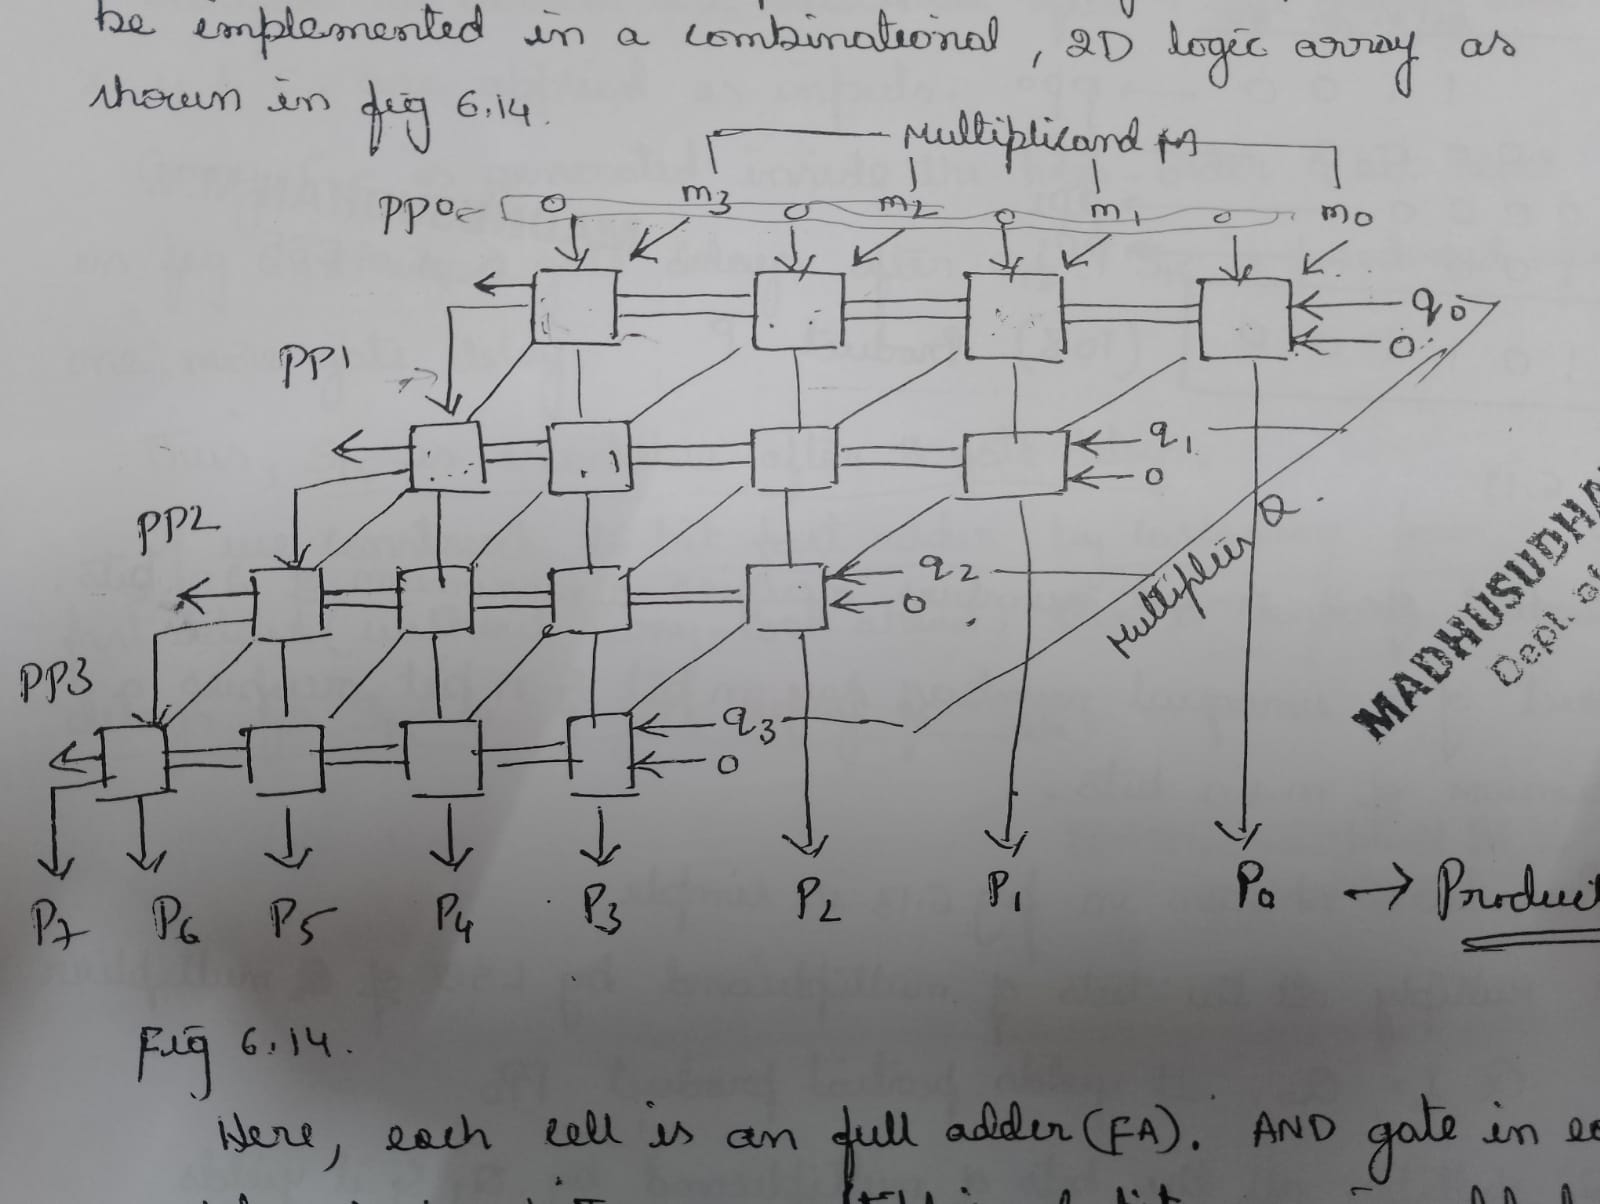 be implemented in a combinational, 2D logic array as
shown in fig 6.14.
Multiplicand M
PP0 0 m3 0 m2 0 m1 0 m0
q0
0
PP1
q1
0
PP2
q2
0
Multiplier Q
PP3
q3
0
P7 P6 P5 P4 P3 P2 P1 P0 → Produc
MADHUSUDHA
Dept. of
Fig 6.14.
Here, each cell is an full adder (FA). AND gate in